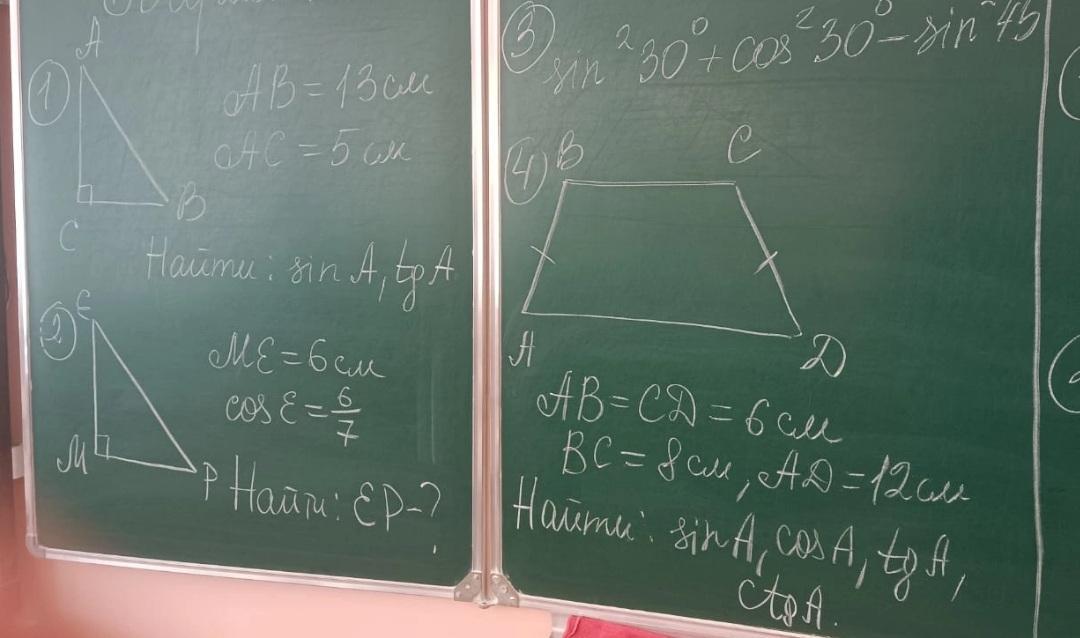 1
A
AB = 13 см
AC = 5 см
C
B
Найти: sin A, tg A
2
E
ME = 6 см
cos E = 6/7
M
P
Найти: EP - ?
3
sin²30° + cos²30° - sin²45
4
B
C
A
D
AB = CD = 6 см
BC = 8 см, AD = 12 см
Найти: sin A, cos A, tg A,
ctg A.